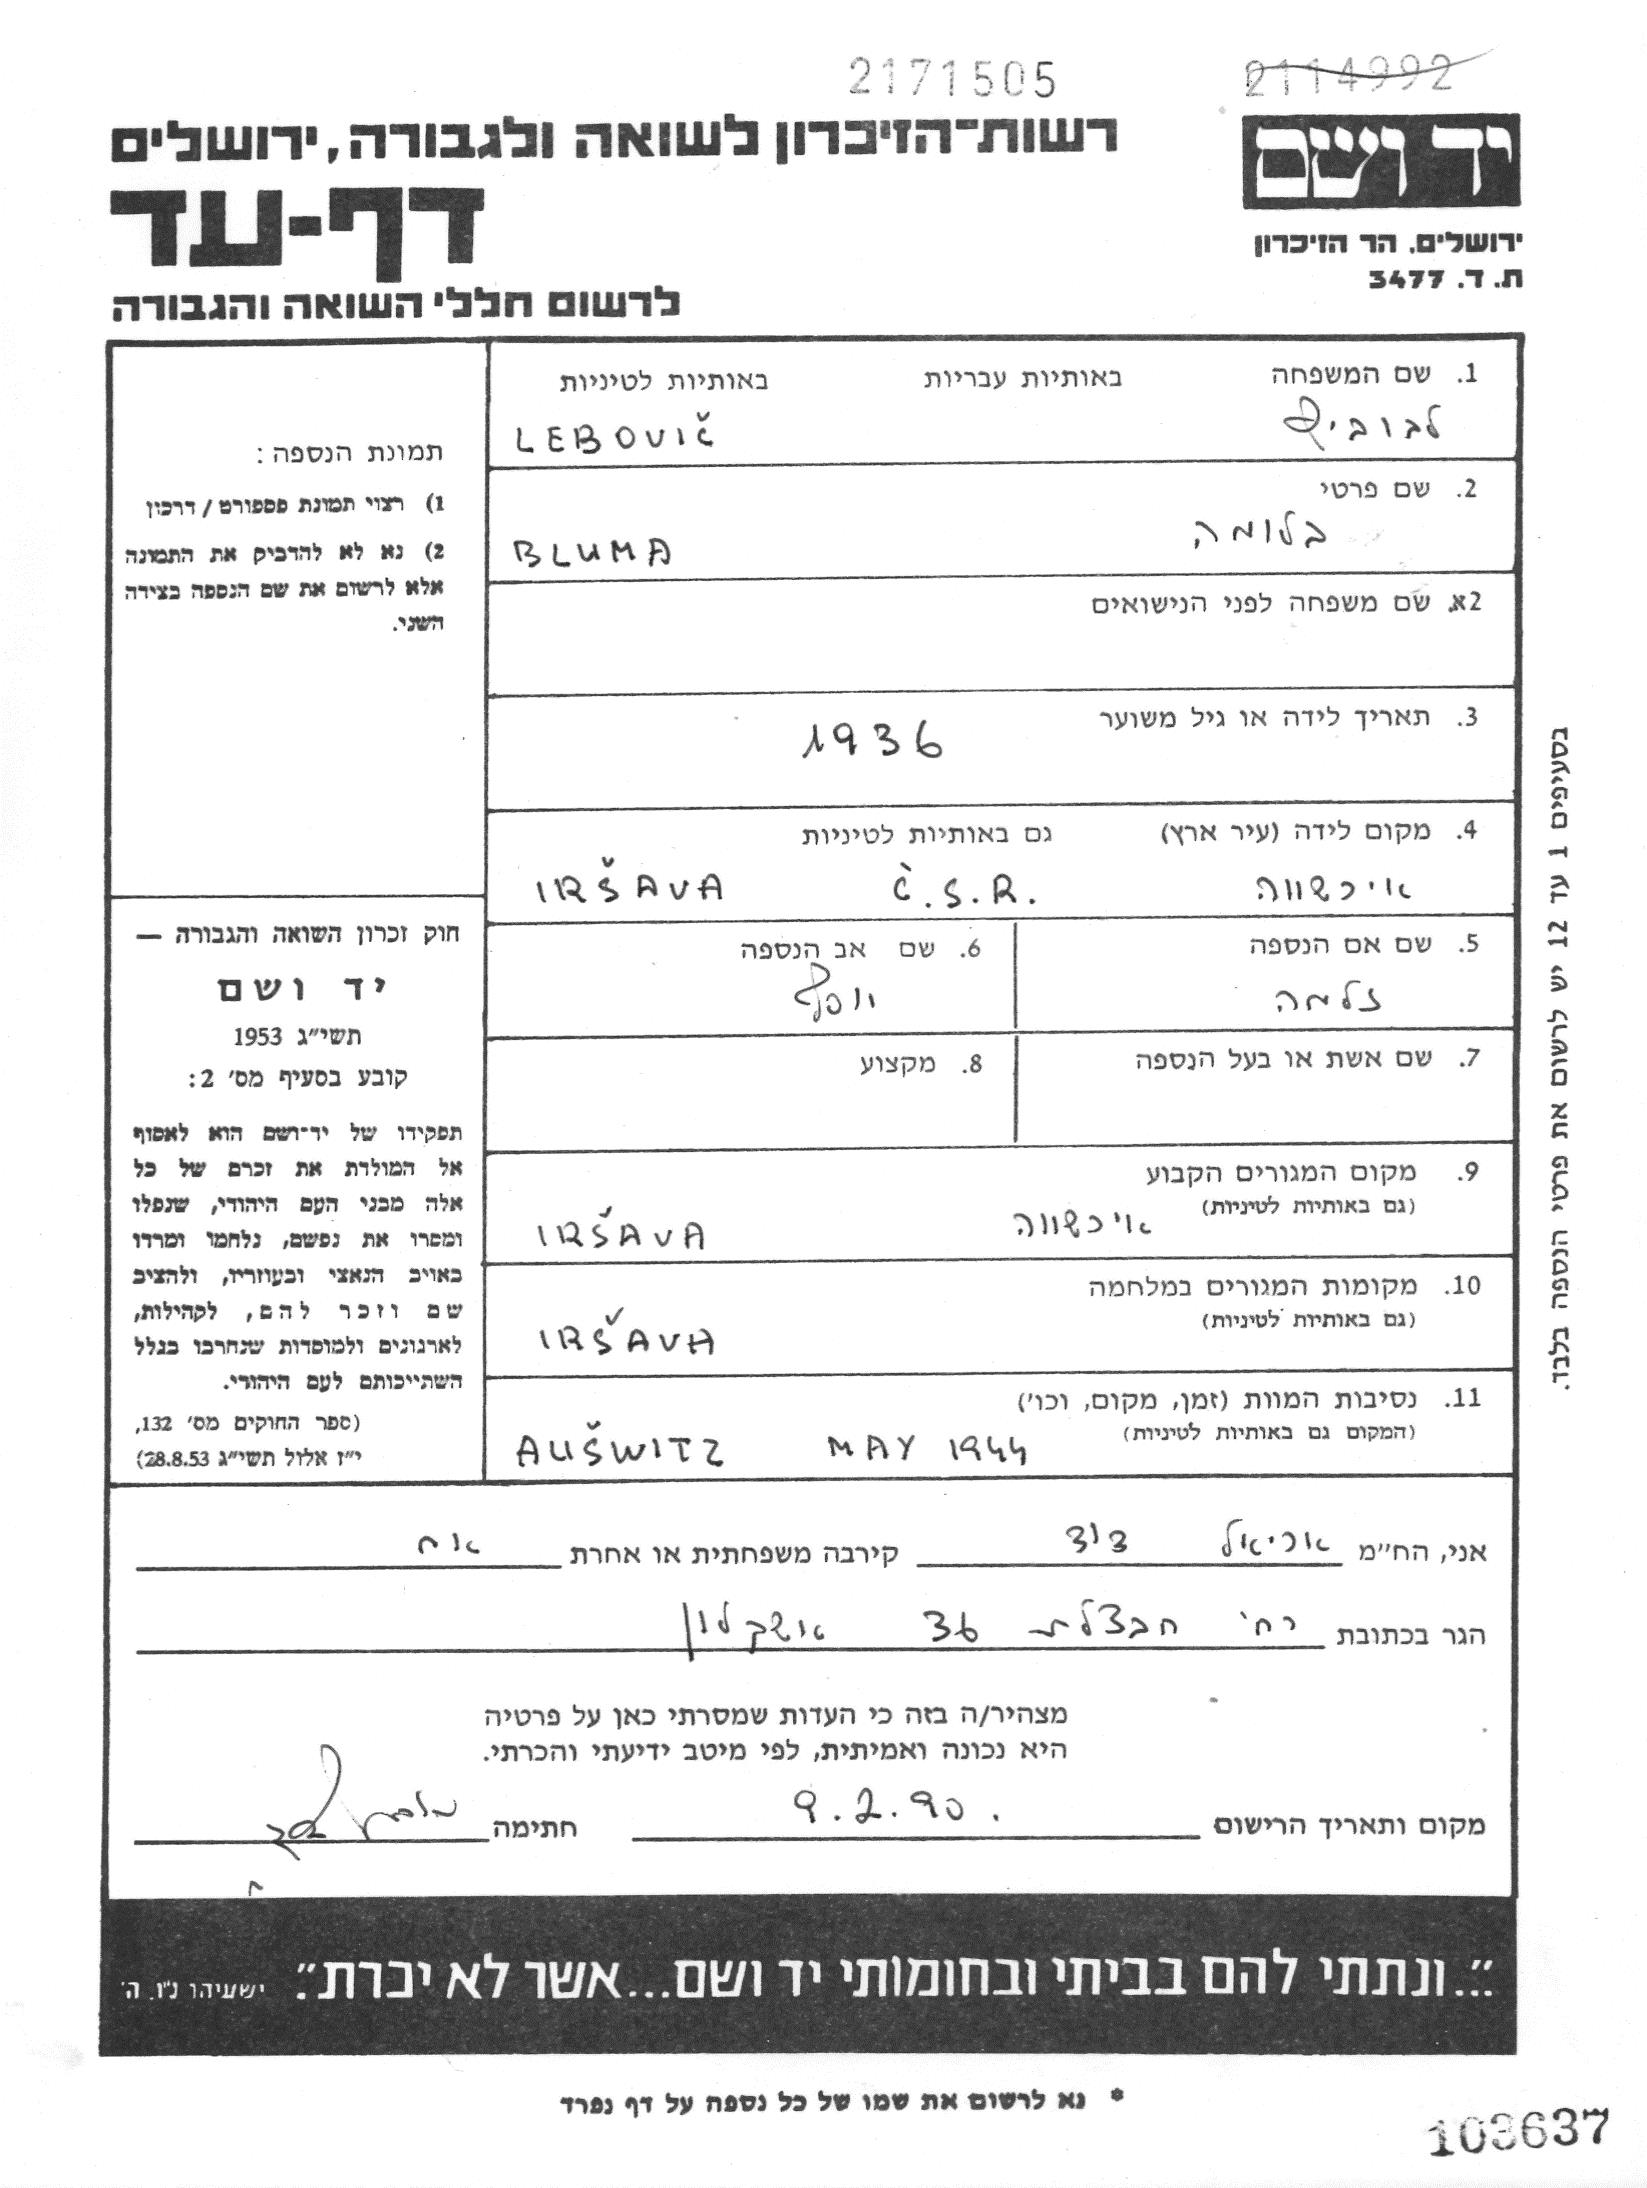 2171505
2114992
יד ושם
ירושלים, הר הזיכרון
ת. ד. 3477
רשות־הזיכרון לשואה ולגבורה, ירושלים
דף-עד
לרשום חללי השואה והגבורה
תמונת הנספה:
1) רצוי תמונת פספורט / דרכון
2) נא לא להדביק את התמונה
אלא לרשום את שם הנספה בצידה
השני.
חוק זכרון השואה והגבורה —
יד ושם
תשי״ג 1953
קובע בסעיף מס׳ 2:
תפקידו של יד־ושם הוא לאסוף
אל המולדת את זכרם של כל
אלה מבני העם היהודי, שנפלו
ומסרו את נפשם, נלחמו ומרדו
באויב הנאצי ובעוזריו, ולהציב
שם וזכר להם, לקהילות,
לארגונים ולמוסדות שנחרבו בגלל
השתייכותם לעם היהודי.
(ספר החוקים מס׳ 132,
י״ז אלול תשי״ג 28.8.53)
1. שם המשפחה באותיות עבריות באותיות לטיניות
לבוביץ LEBOVIČ
2. שם פרטי
בלומה BLUMA
2א. שם משפחה לפני הנישואים
3. תאריך לידה או גיל משוער
1936
4. מקום לידה (עיר ארץ) גם באותיות לטיניות
אירשווה Č.S.R. IRŠAVA
5. שם אם הנספה 6. שם אב הנספה
זלמה יוסף
7. שם אשת או בעל הנספה 8. מקצוע
9. מקום המגורים הקבוע
(גם באותיות לטיניות)
אירשווה IRŠAVA
10. מקומות המגורים במלחמה
(גם באותיות לטיניות)
IRŠAVA
11. נסיבות המוות (זמן, מקום, וכו׳)
(המקום גם באותיות לטיניות)
AUŠWITZ MAY 1944
בסעיפים 1 עד 12 יש לרשום את פרטי הנספה בלבד.
אני, הח״מ אריאל דוד קירבה משפחתית או אחרת אח
הגר בכתובת רח׳ חבצלת 36 אשקלון
מצהיר/ה בזה כי העדות שמסרתי כאן על פרטיה
היא נכונה ואמיתית, לפי מיטב ידיעתי והכרתי.
מקום ותאריך הרישום 9.2.90. חתימה
״...ונתתי להם בביתי ובחומותי יד ושם...אשר לא יכרת״. ישעיהו נ״ו, ה׳
* נא לרשום את שמו של כל נספה על דף נפרד
103637